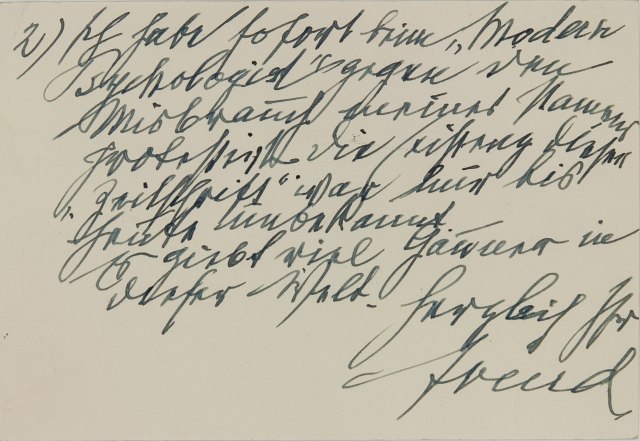 2) Ich habe sofort beim „Modern
Psychologist" gegen den
Misbrauch meines Namens
protestirt. Die Existenz dieser
„Zeitschrift" war mir bis
heute unbekannt
Es giebt viel Gauner in
dieser Welt.
Herzlich Ihr
Freud